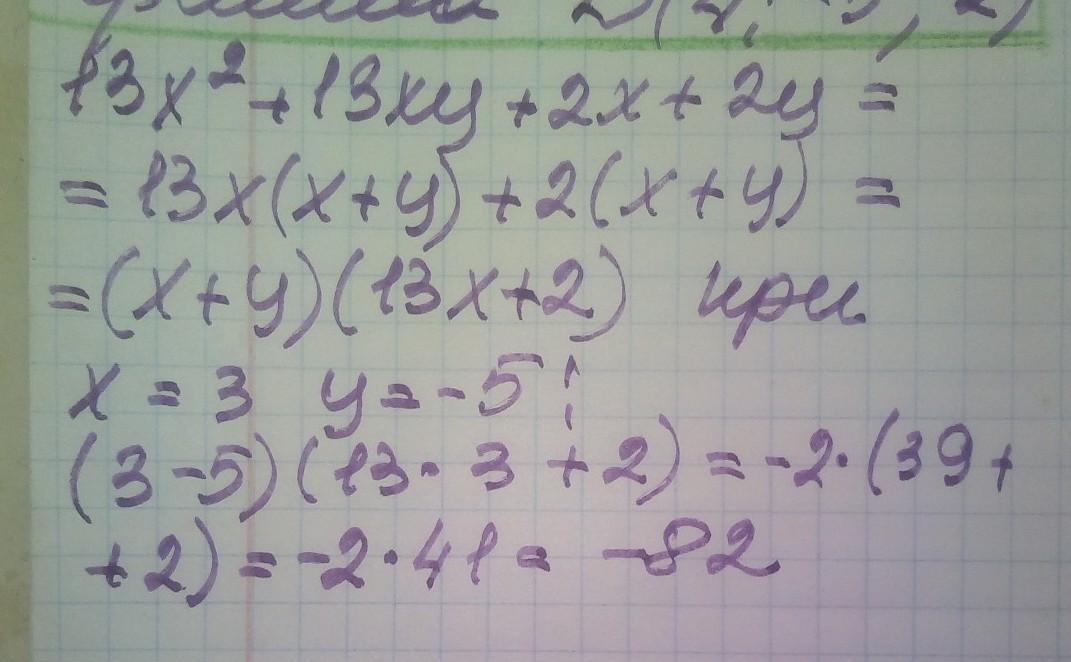 13x² + 13xy + 2x + 2y =
= 13x(x+y) + 2(x+y) =
= (x+y)(13x+2) при
x = 3 y = -5 :
(3-5)(13·3+2) = -2·(39+
+2) = -2·41 = -82